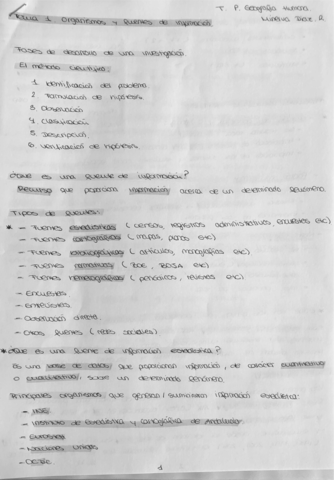 T. P. Geografía Humana
Tema 1. Organismos y fuentes de información
Minerva Díaz. R
Fases de desarrollo de una investigación
El método científico:
1. Identificación del problema
2. Formulación de hipótesis
3. Observación
4. Clasificación
5. Descripción
6. Verificación de hipótesis
¿Qué es una fuente de información?
Recurso que proporciona información acerca de un determinado fenómeno.
Tipos de fuentes:
* - Fuentes estadísticas (censos, registros administrativos, encuestas etc)
- Fuentes cartográficas (mapas, planos etc)
- Fuentes bibliográficas (artículos, monografías etc)
- Fuentes normativas (BOE, BOJA etc)
- Fuentes hemerográficas (periódicos, revistas etc)
- Encuestas
- Entrevistas
- Observación directa
- Otras fuentes (redes sociales)
* ¿Qué es una fuente de información estadística?
Es una base de datos que proporcionan información, de carácter cuantitativo
o cualitativo, sobre un determinado fenómeno
Principales organismos que generan/suministran información estadística:
- INE
- Instituto de Estadística y Cartografía de Andalucía
- Eurostat
- Naciones Unidas
- OCDE
1